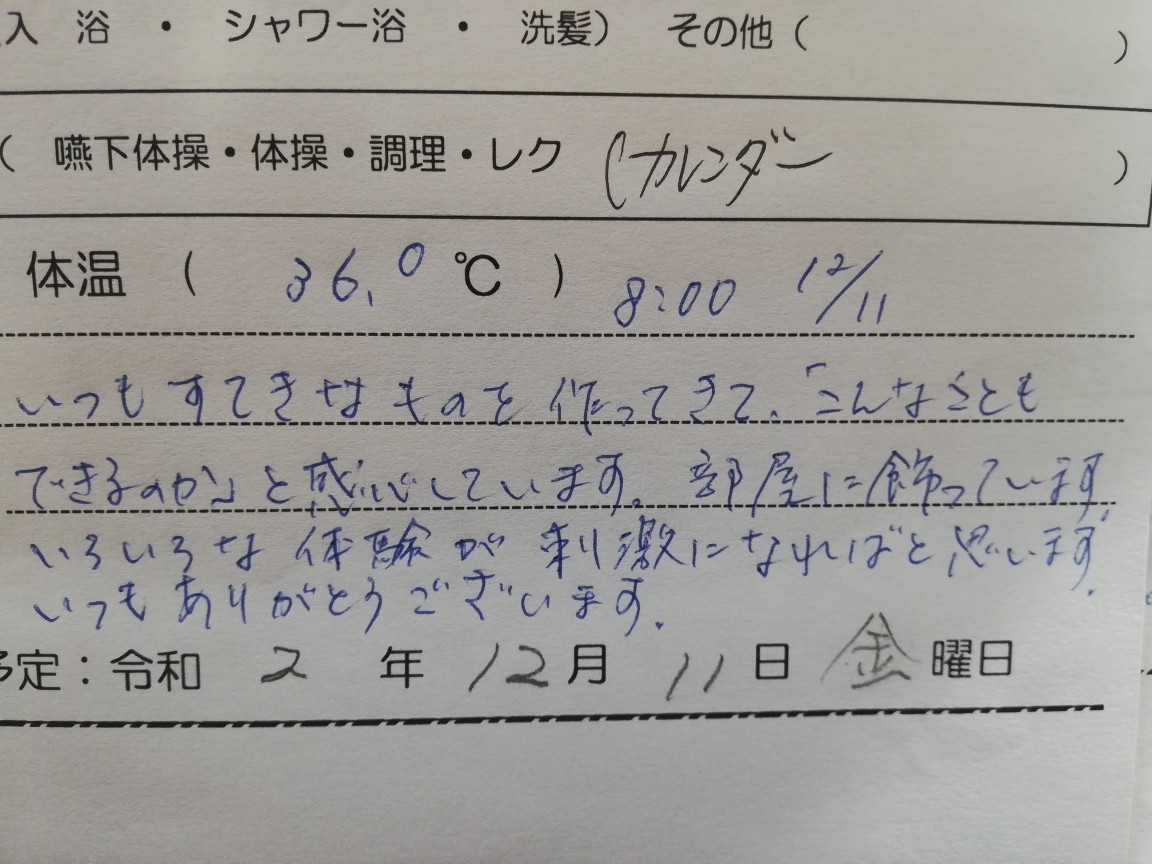 入 浴 ・ シャワー浴 ・ 洗髪） その他（ ）
（ 嚥下体操・体操・調理・レク（カレンダー ）
体温 （ 36.0 ℃ ） 8:00 12/11
いつもすてきなものを作ってきて、「こんなことも
できるのか」と感心しています。部屋に飾っています。
いろいろな体験が刺激になればと思います。
いつもありがとうございます。
予定：令和 2 年 12 月 11 日 金 曜日